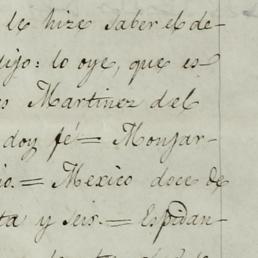 le hize saber el de-
dijo: lo oye, que es-
es Martinez del
doy fé = Monjar-
io. = Mexico doce de
ta y seis. = Espidan-